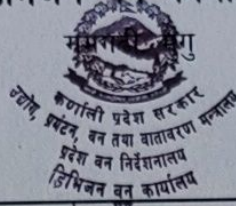 कर्णाली प्रदेश सरकार
उद्योग, पर्यटन, वन तथा वातावरण मन्त्रालय
प्रदेश वन निर्देशनालय
डिभिजन वन कार्यालय